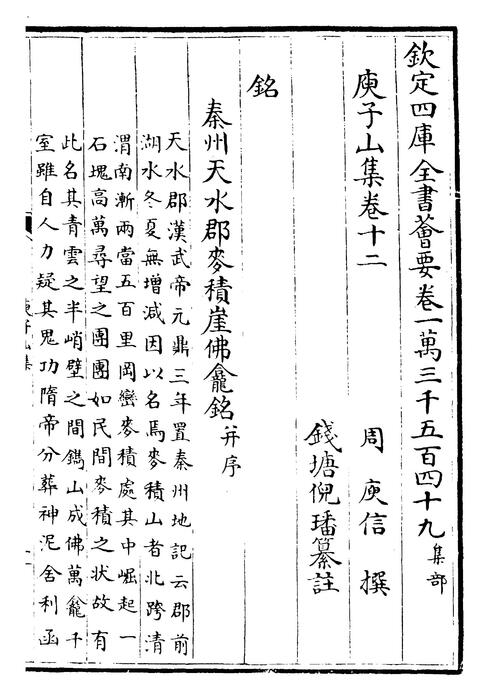 欽定四庫全書薈要卷一萬三千五百四十九集部
庾子山集卷十二
周庾信撰
錢塘倪璠纂註
銘
秦州天水郡麥積崖佛龕銘并序
天水郡漢武帝元鼎三年置秦州地記云郡前
湖水冬夏無增減因以名焉麥積山者北跨清
渭南漸兩當五百里岡巒麥積處其中崛起一
石塊高萬尋望之團團如民間麥積之状故有
此名其青雲之半峭壁之間鐫山成佛萬龕千
室雖自人力疑其鬼功隋帝分葬神泥舍利函